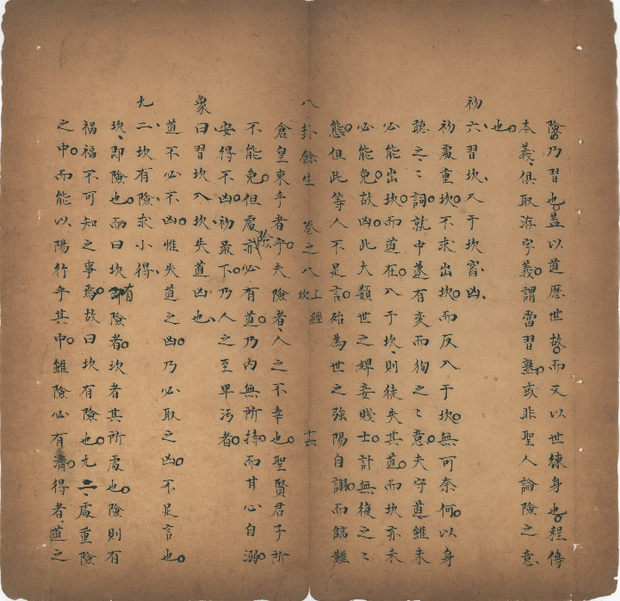 險乃習也。蓋以道歷世故。而又以世練身也。程傳
本義、俱取洊字義。謂當習熟。或非聖人論險之意
也。
初六、習坎、入于坎窞、凶、
初處重坎。不求出坎。而反入于坎。無可奈何。以身
聽之之詞。就中遂有亥而狥之之意。夫守道。雖未
必能出坎。而道在。入于坎、則徒失其道。而坎亦未
必能免。故凶。此夫類世之婢妾賤士計無復之之
態。但此等人不足言。殆為世之強陽自謝。而臨難
八卦餘生 卷之八 上經 坎 十六
倉皇束手者乎。夫險者、人之不幸也。聖賢君子所
不能免。但處險必有道。乃內無所持。而其心自溺。
安得不凶。初最下。乃人之至卑污者。
象曰、習坎入坎、失道凶也、
道不必不凶。惟失道之凶。乃必取之凶。不足言也。
九二、坎有險、求小得、
坎、即險也。而曰坎有險者。坎者其所處也。險則有
禍福不可知之事焉。故曰坎有險也。九二、處重險
之中。而能以陽行乎其中。雖險必有濟得者、道之